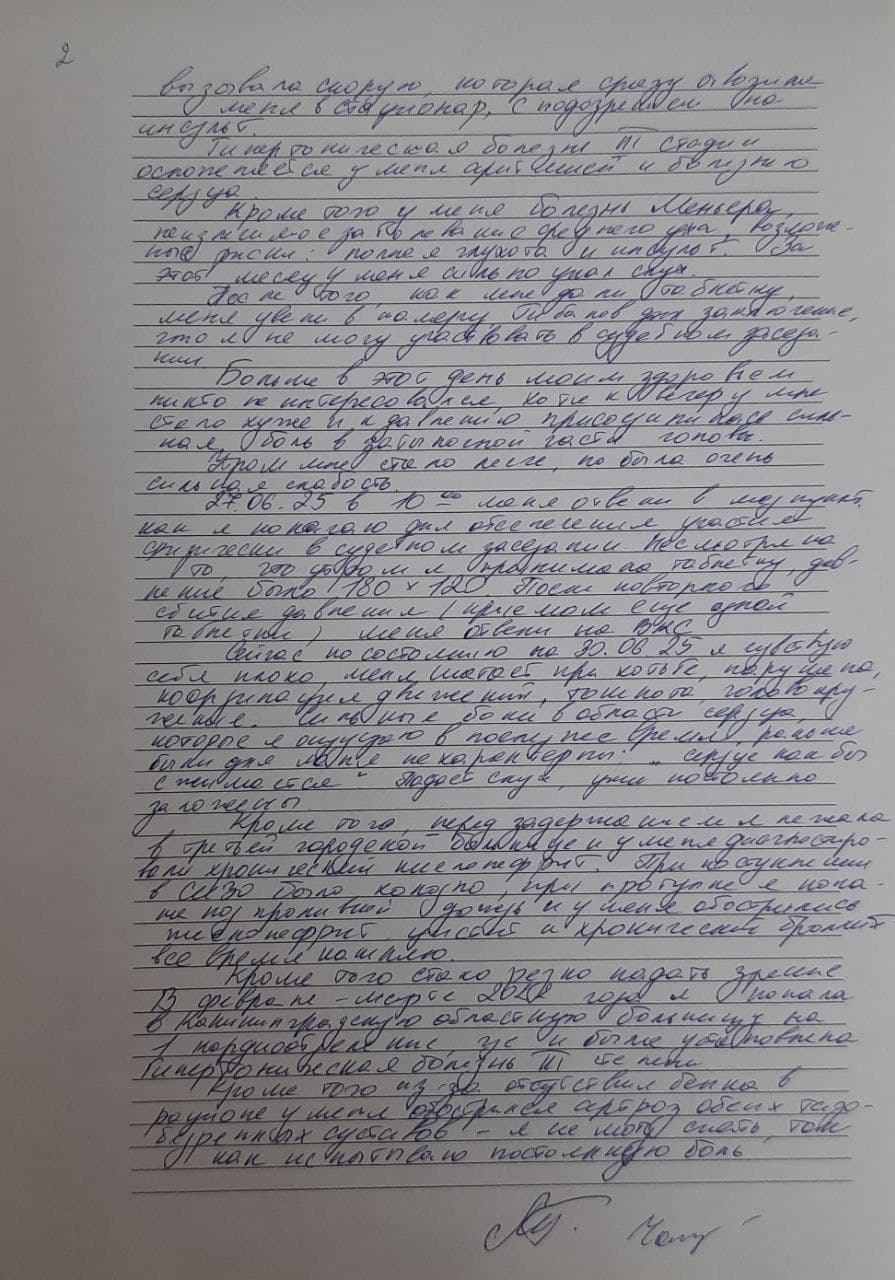 2
вызывала скорую, которая сразу увозила
меня в стационар, с подозрением на
инсульт.
Гипертоническая болезнь III стадии
осложняется у меня аритмией и болезнью
сердца.
Кроме того у меня болезнь Меньера,
неизлечимое заболевание среднего уха, возмож-
ные риски: полная глухота и инсульт. За
этот месяц у меня сильно упал слух.
После того, как мне дали таблетку,
меня увели в камеру. дал заключение,
что я не могу участвовать в судебном заседа-
нии
Больше в этот день моим здоровьем
никто не интересовался, хотя к вечеру мне
стало хуже и к давлению присоединилась силь-
ная боль в затылочной части головы.
Утром мне стало легче, но была очень
сильная слабость.
27.06.25 в 10 00 меня отвели в медпункт,
как я полагаю для обеспечения участия
физически в судебном заседании. Несмотря на
то, что утром я принимала таблетку, дав-
ление было 180 × 120. После повторного
сбития давления (приемом еще одной
таблетки) меня отвели на ВКС
Сейчас по состоянию на 30.06.25 я чувствую
себя плохо, меня шатает при ходьбе, нарушена
координация движений, тошнота, головокру-
жение. Сильные боли в области сердца,
которые я ощущаю в последнее время, раньше
были для меня не характерны: „сердце как бы
сжимается“ Падает слух, уши постоянно
заложены.
Кроме того, перед задержанием я лежала
в третьей городской больнице и у меня диагностиро-
вали хронический пиелонефрит. При поступлении
в СИЗО было холодно, при прогулке я попа-
ла под проливной дождь и у меня обострились
пиелонефрит, цистит и хронический бронхит
все время кашляю.
Кроме того стало резко падать зрение
В феврале - марте года я попала
в Калининградскую областную больницу на
1 кардиоотделение, где и была установлена
Гипертоническая болезнь III степени
Кроме того из-за отсутствия белка в
рационе у меня обострился артроз обеих тазо-
бедренных суставов - я не могу спать, так
как испытываю постоянную боль